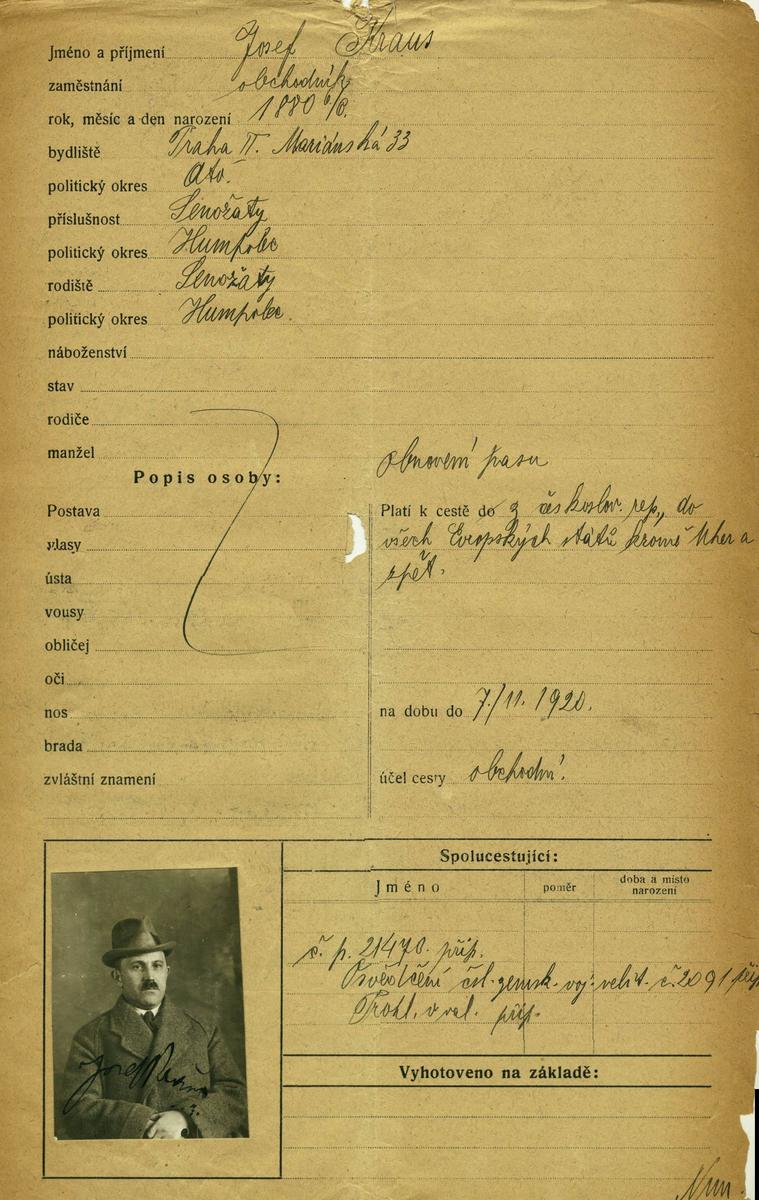 Jméno a příjmení Josef Kraus
zaměstnání obchodník
rok, měsíc a den narození 1880 6/8.
bydliště Praha II. Mariánská 33
politický okres dto.
příslušnost Senožaty
politický okres Humpolec
rodiště Senožaty
politický okres Humpolec.
náboženství
stav
rodiče
manžel
Popis osoby:
Postava
vlasy
ústa
vousy
obličej
oči
nos
brada
zvláštní znamení
obnovení pasu
Platí k cestě do z českoslov. rep., do
všech Evropských států kromě Uher a
zpět.
na dobu do 7./11. 1920.
účel cesty obchodní.
Spolucestující:
Jméno poměr doba a místo narození
č. p. 21470. příp.
Osvědčení čsl. zemsk. voj. velit. č. 2091 příp
Prohl. o val. příp.
Vyhotoveno na základě:
Josef Kraus